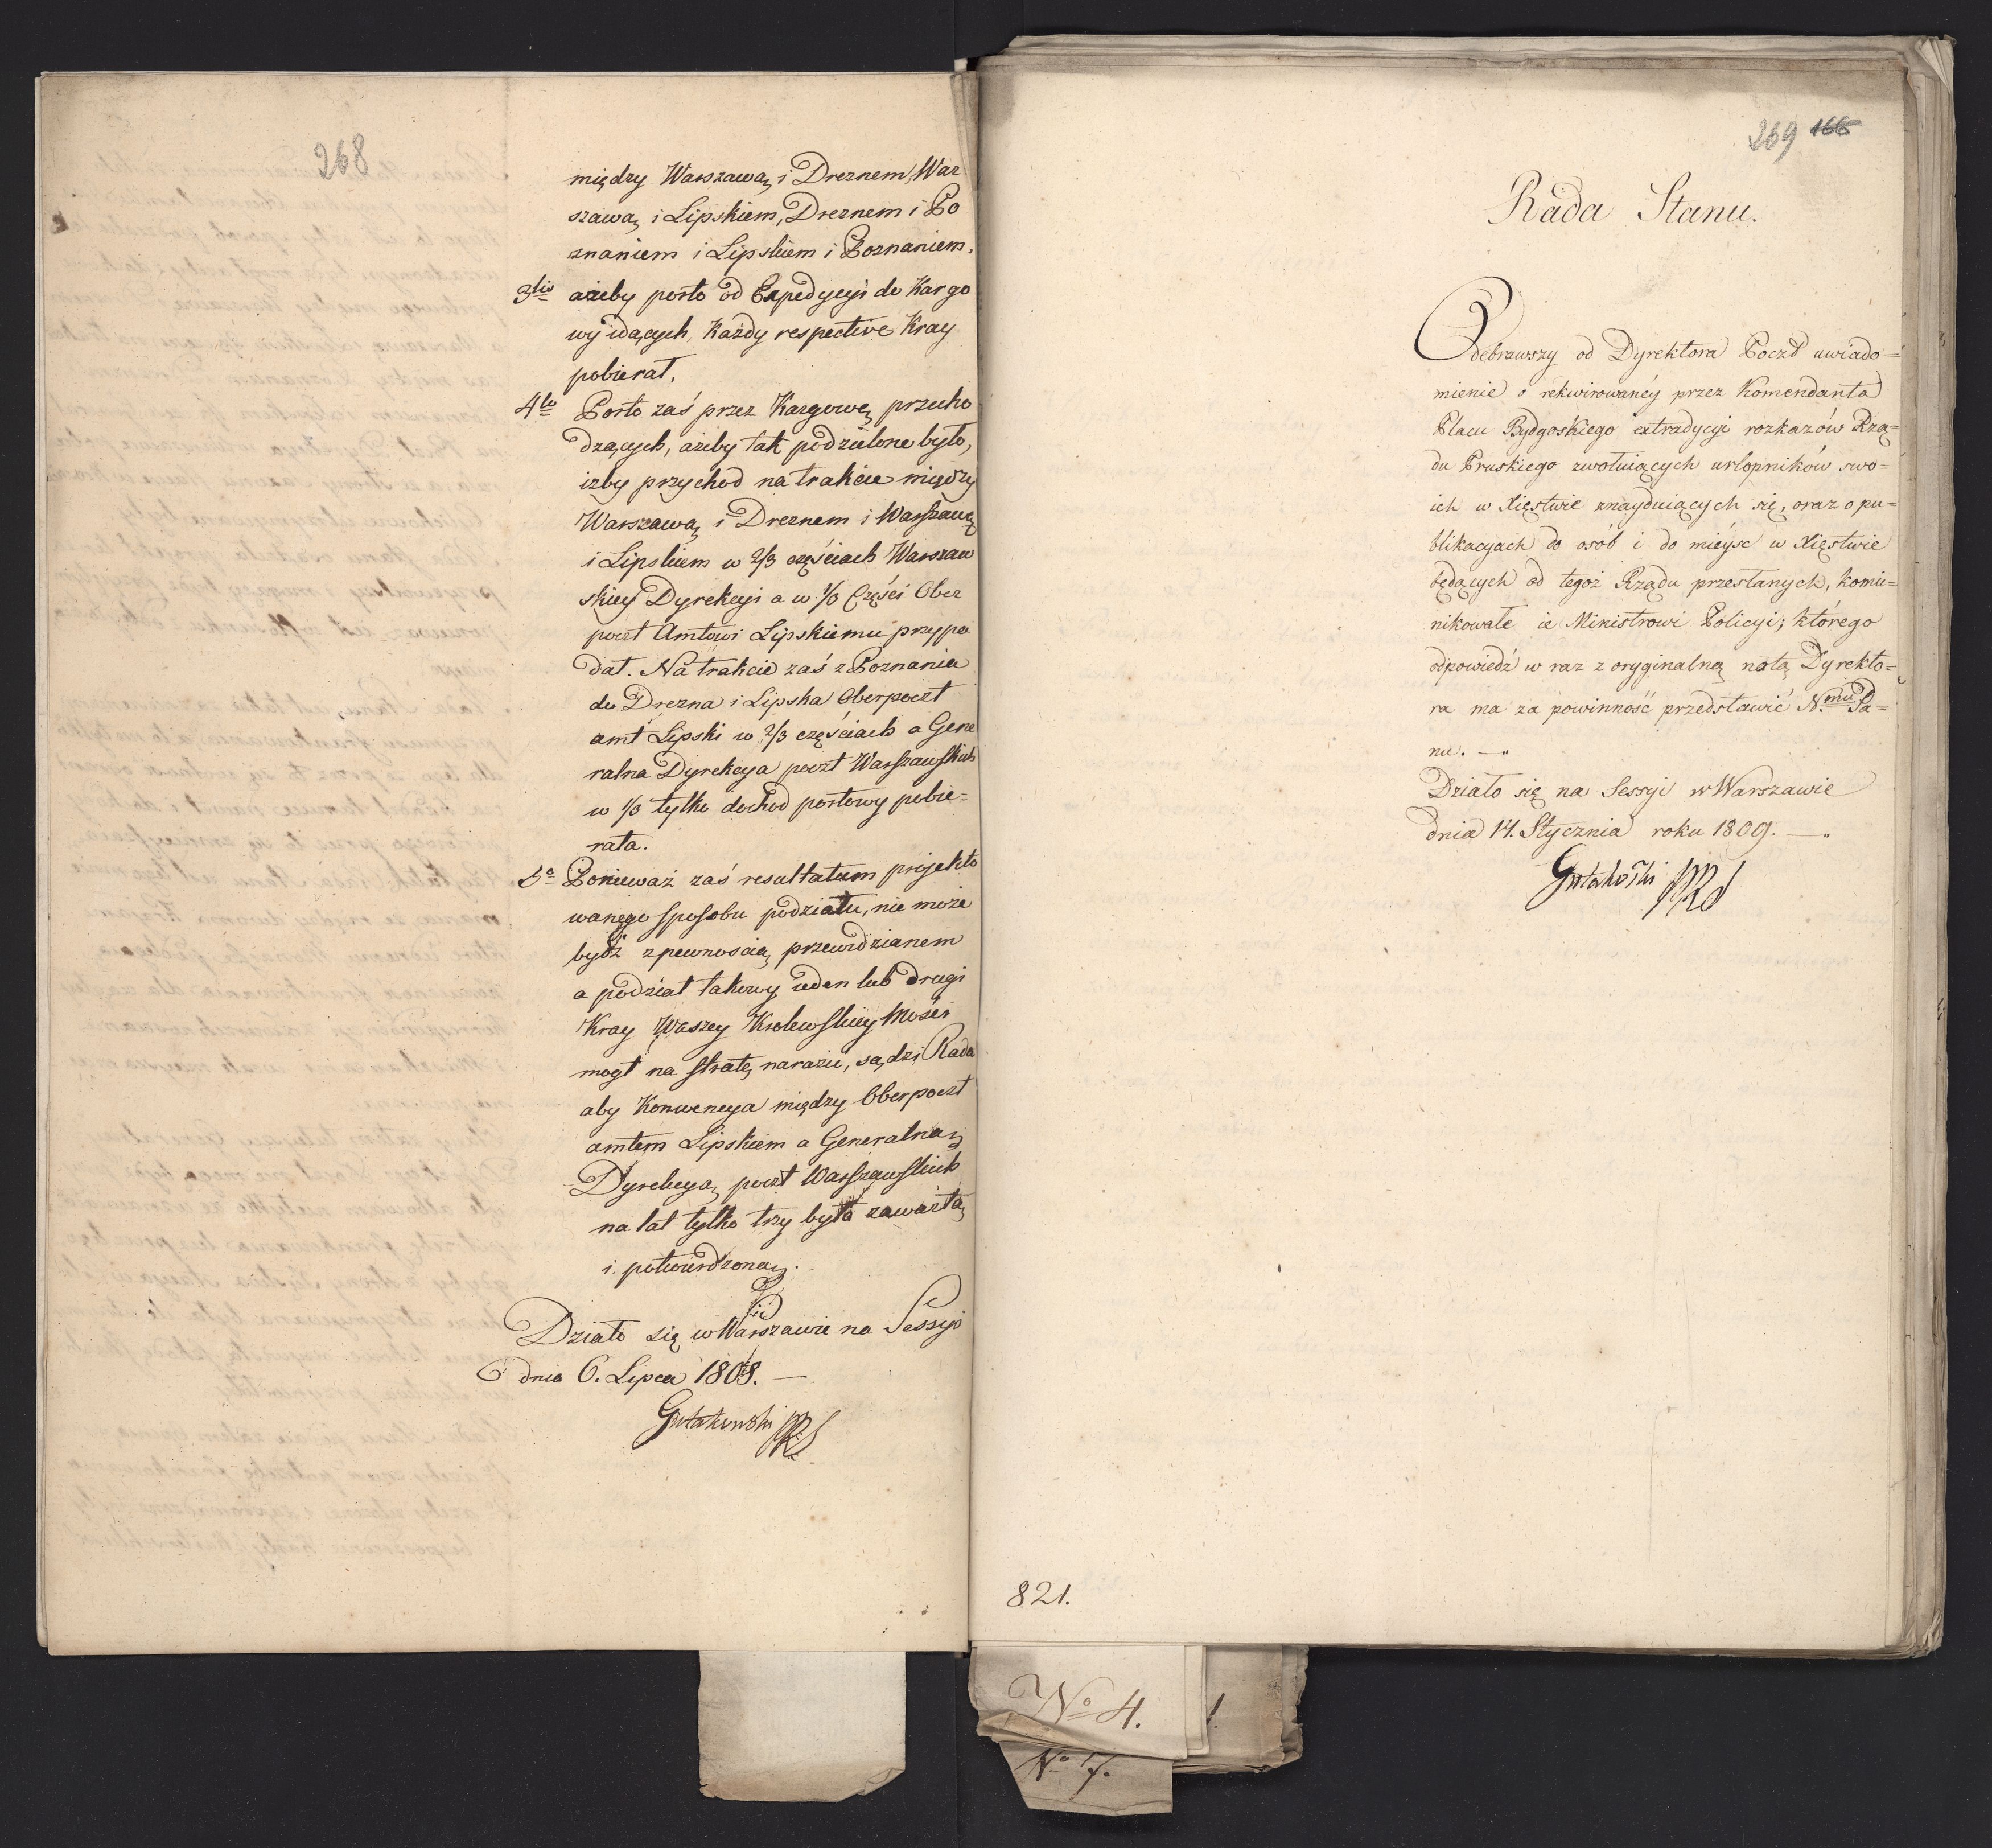 268
między Warszawą i Dreznem, War
szawą i Lipskiem, Dreznem i Po
znaniem i Lipskiem i Poznaniem.
3tio ażeby porto od Expedycyi do Kargo
wy idących, Każdy respective Kray
pobierał,
4to Porto zaś przez Kargowę przecho
dzących, ażeby tak podzielone było,
iżby przychod na trakcie między
Warszawą i Dreznem i Warszawą
i Lipskiem w 2/3 częściach Warszaw
skiey Dyrekcyi a w 1/3 Części Ober
poczt Amtowi Lipskiemu przypa
dał. Na trakcie zaś z Poznania
do Drezna i Lipska Oberpoczt
amt Lipski w 2/3 częściach a Gene
ralna Dyrekcya poczt Warszawskich
w 1/3 tylko dochod portowy pobie=
rała.
5o Ponieważ zaś resultatum projekto
wanego sposobu podziału, nie może
bydź z pewnoscią przewidzianem
a podział takowy ieden lub drugi
Kray Waszey Krolewskiey Mości
mogł na stratę narazić, sądzi Rada
aby Konwencya między Oberpoczt
amtem Lipskiem a Generalną
Dyrekcyą poczt Warszawskich
na lat tylko trzy była zawartą
i potwierdzoną.
Działo się w Warszawie na Sessyi
dnia 6. Lipca 1808. —
Gutakowski PRS
269 166
Rada Stanu.
Odebrawszy od Dyrektora Poczt uwiado=
mienie o rekwirowanéy przez Komendanta
Placu Bydgoskiego extradycyi rozkazów Rzą=
du Pruskiego zwołuiących urlopników swo=
ich w Xięstwie znayduiących się, oraz o pu=
blikacyach do osób i do mieysc w Xięstwie
będących od tegoż Rządu przesłanych, komu=
nikowała ie Ministrowi Policyi; którego
odpowiedź w raz z oryginalną notą Dyrekto=
ra ma za powinność przedstawić N.mu Pa=
nu. —
Działo się na Sessyi w Warszawie
dnia 14. Stycznia roku 1809. —
Gutakowski PRS
821.
No 4.
1.
No 7.